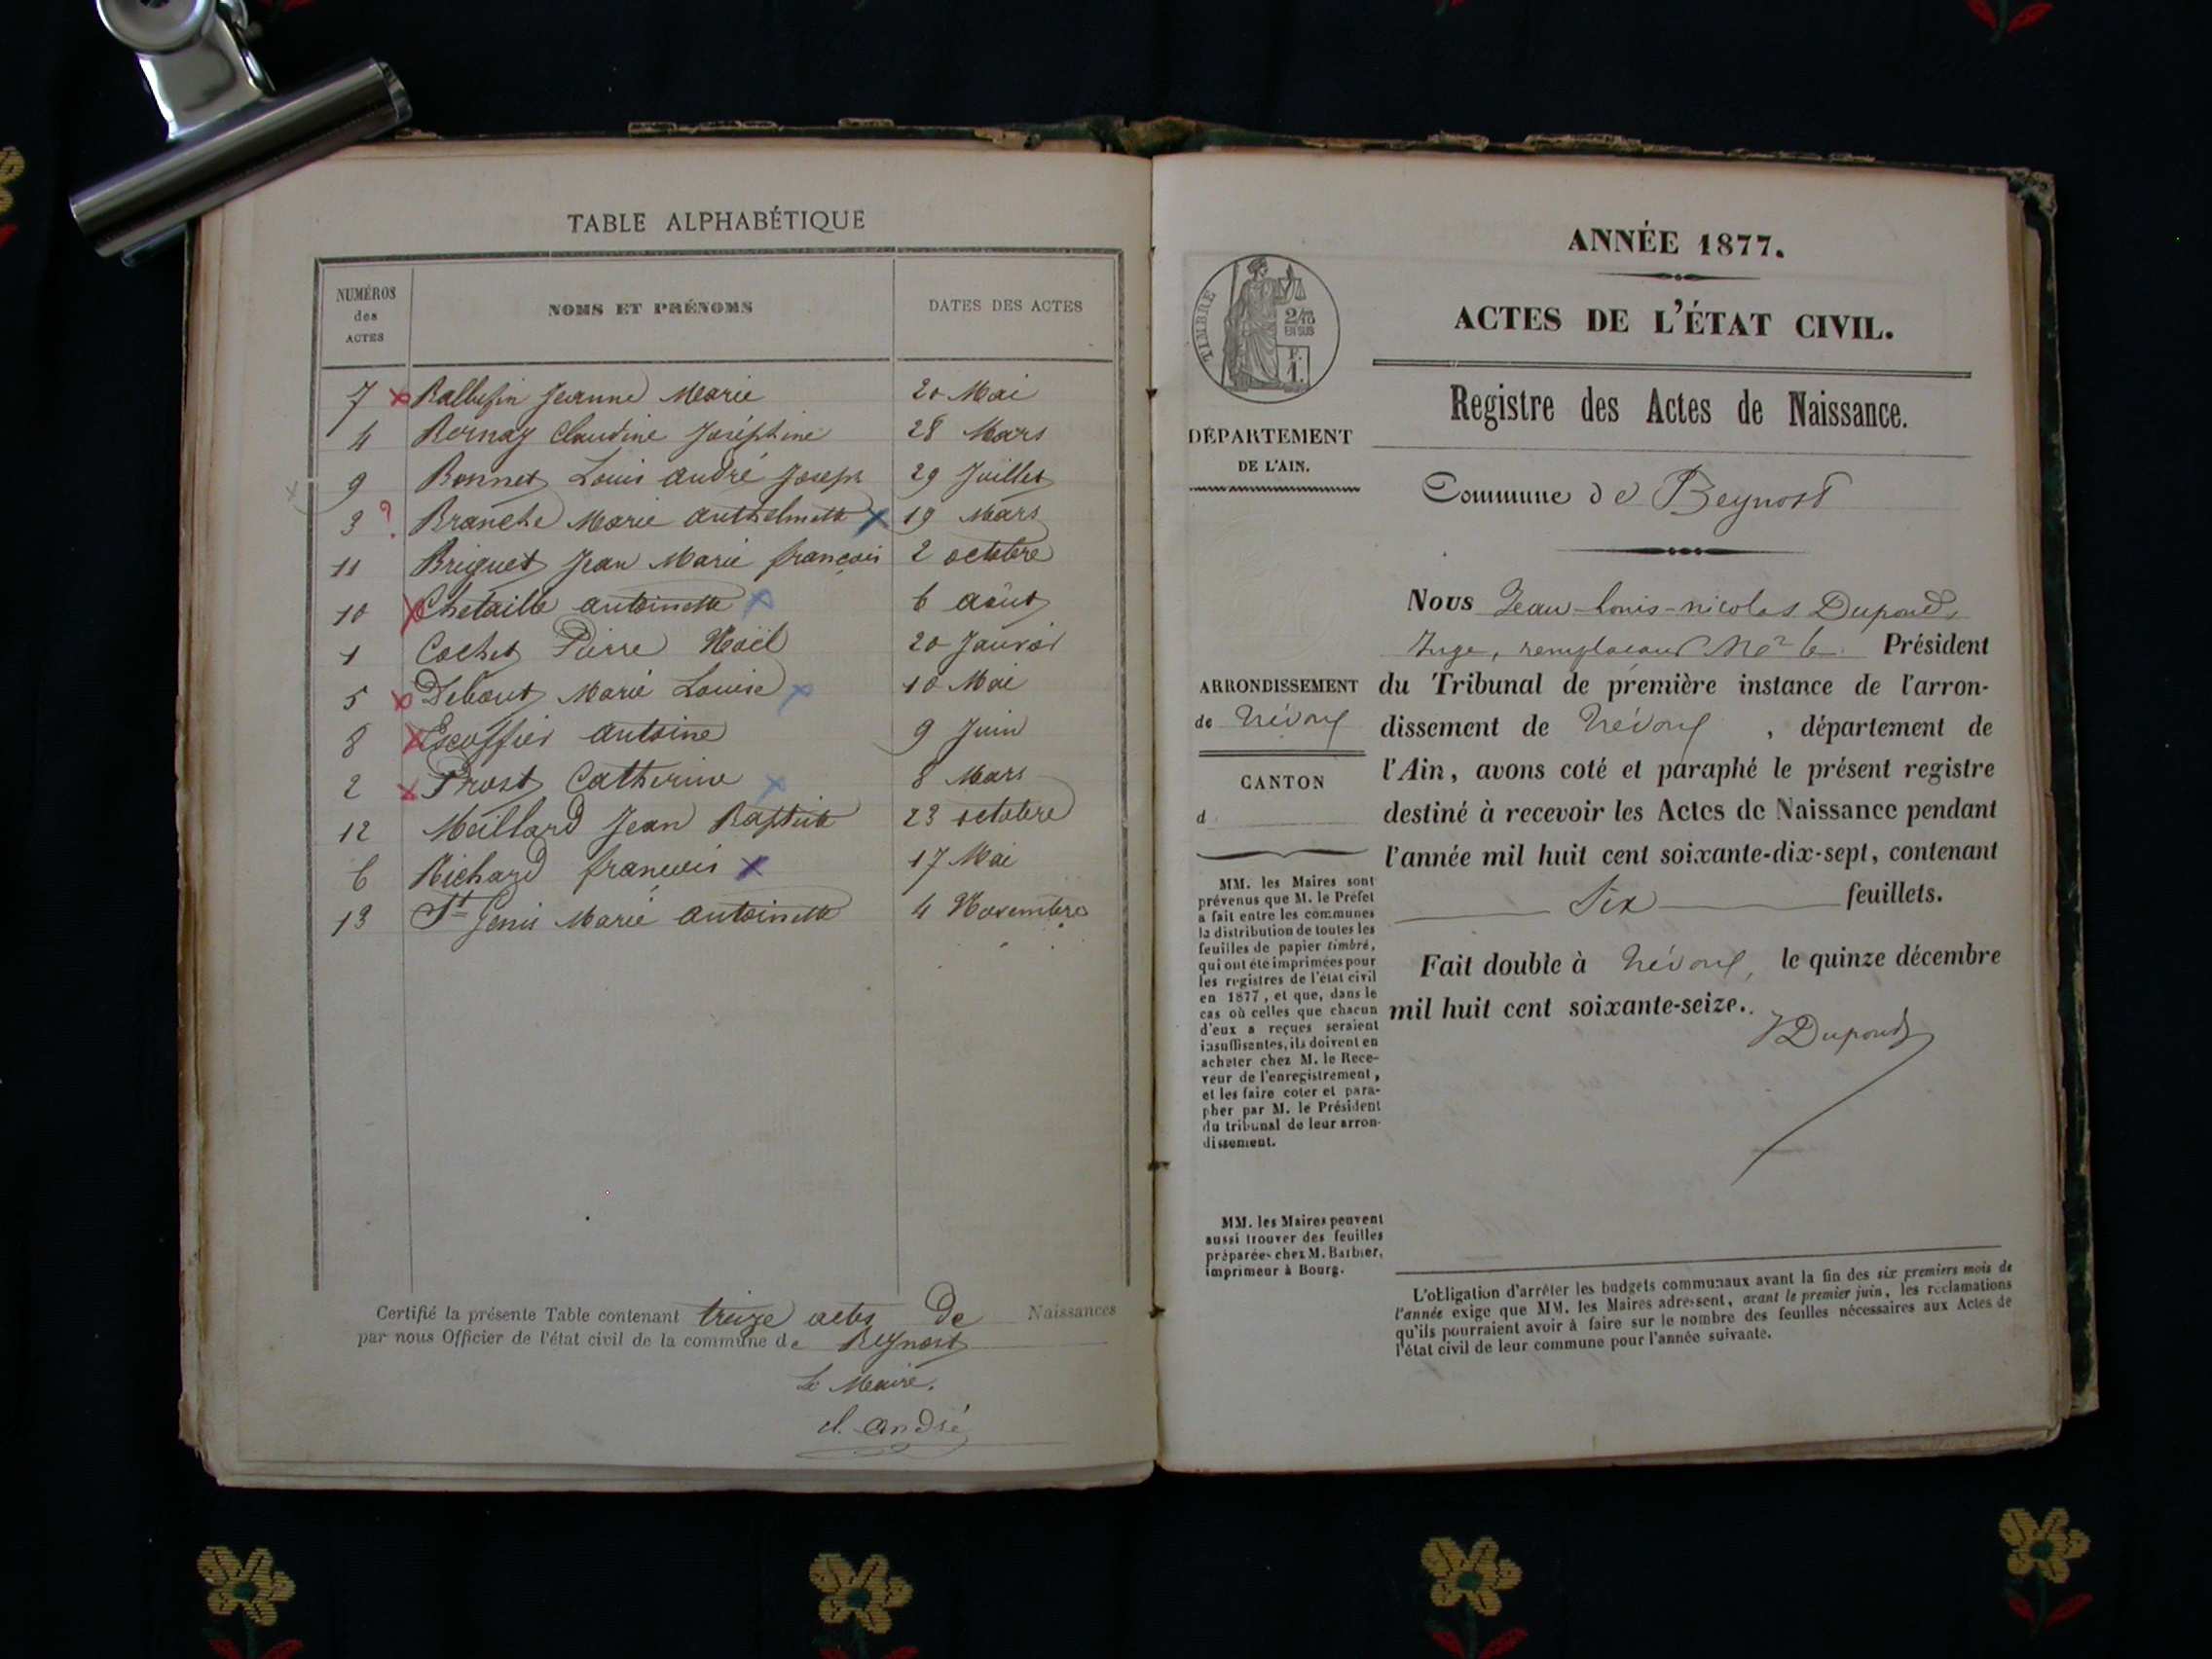 TABLE ALPHABÉTIQUE
NUMÉROS
des
ACTES
NOMS ET PRÉNOMS
DATES DES ACTES
7 Ballufin Jeanne Marie 20 Mai
4 Bernay Claudine Joséphine 28 Mars
9 Bonnet Louis André Joseph 29 Juillet
3 ? Branche Marie Anthelmette 19 Mars
11 Briguet Jean Marie françois 2 octobre
10 Chetaille antoinette 6 août
1 Cochet Pierre Noël 20 Janvier
5 Debout Marie Louise 10 Mai
8 Escoffier antoine 9 Juin
2 Prost Catherine 8 Mars
12 Maillard Jean Baptiste 23 octobre
6 Richard francois 17 Mai
13 St Genis Marie antoinette 4 Novembre
Certifié la présente Table contenant treize actes de Naissances
par nous Officier de l'état civil de la commune de Beynost
Le Maire,
cl. andré
ANNÉE 1877.
ACTES DE L'ÉTAT CIVIL.
Registre des Actes de Naissance.
TIMBRE
2/10
EN SUS
F.
1.
DÉPARTEMENT
DE L'AIN.
Commune de Beynost
Nous Jean-Louis-nicolas Dupond,
Juge, remplaçant Mr le Président
du Tribunal de première instance de l'arron-
dissement de Trévoux, département de
l'Ain, avons coté et paraphé le présent registre
destiné à recevoir les Actes de Naissance pendant
l'année mil huit cent soixante-dix-sept, contenant
Six feuillets.
Fait double à Trévoux, le quinze décembre
mil huit cent soixante-seize.
JDupond
ARRONDISSEMENT
de Trévoux
CANTON
d
MM. les Maires sont
prévenus que M. le Préfet
a fait entre les communes
la distribution de toutes les
feuilles de papier timbré,
qui ont été imprimées pour
les registres de l'état civil
en 1877, et que, dans le
cas où celles que chacun
d'eux a reçues seraient
insuffisantes, ils doivent en
acheter chez M. le Rece-
veur de l'enregistrement,
et les faire coter et para-
pher par M. le Président
du tribunal de leur arron-
dissement.
MM. les Maires peuvent
aussi trouver des feuilles
préparées chez M. Barbier,
imprimeur à Bourg.
L'obligation d'arrêter les budgets communaux avant la fin des six premiers mois de
l'année exige que MM. les Maires adressent, avant le premier juin, les réclamations
qu'ils pourraient avoir à faire sur le nombre des feuilles nécessaires aux Actes de
l'état civil de leur commune pour l'année suivante.